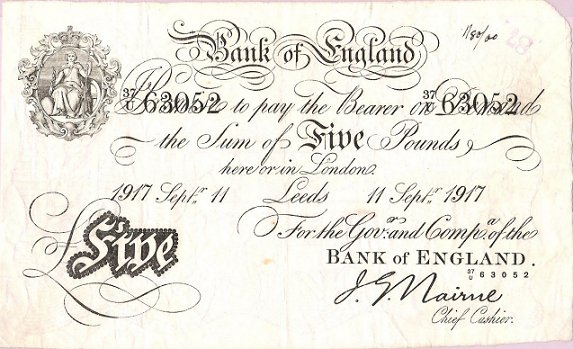 Bank of England
37/U 63052 37/U 63052
I Promise to pay the Bearer on Demand
the Sum of Five Pounds
here or in London
1917 Septr. 11 Leeds 11 Septr. 1917
For the Govr. and Compa. of the
£ Five
BANK of ENGLAND.
37/U 63052
J. G. Nairne
Chief Cashier.